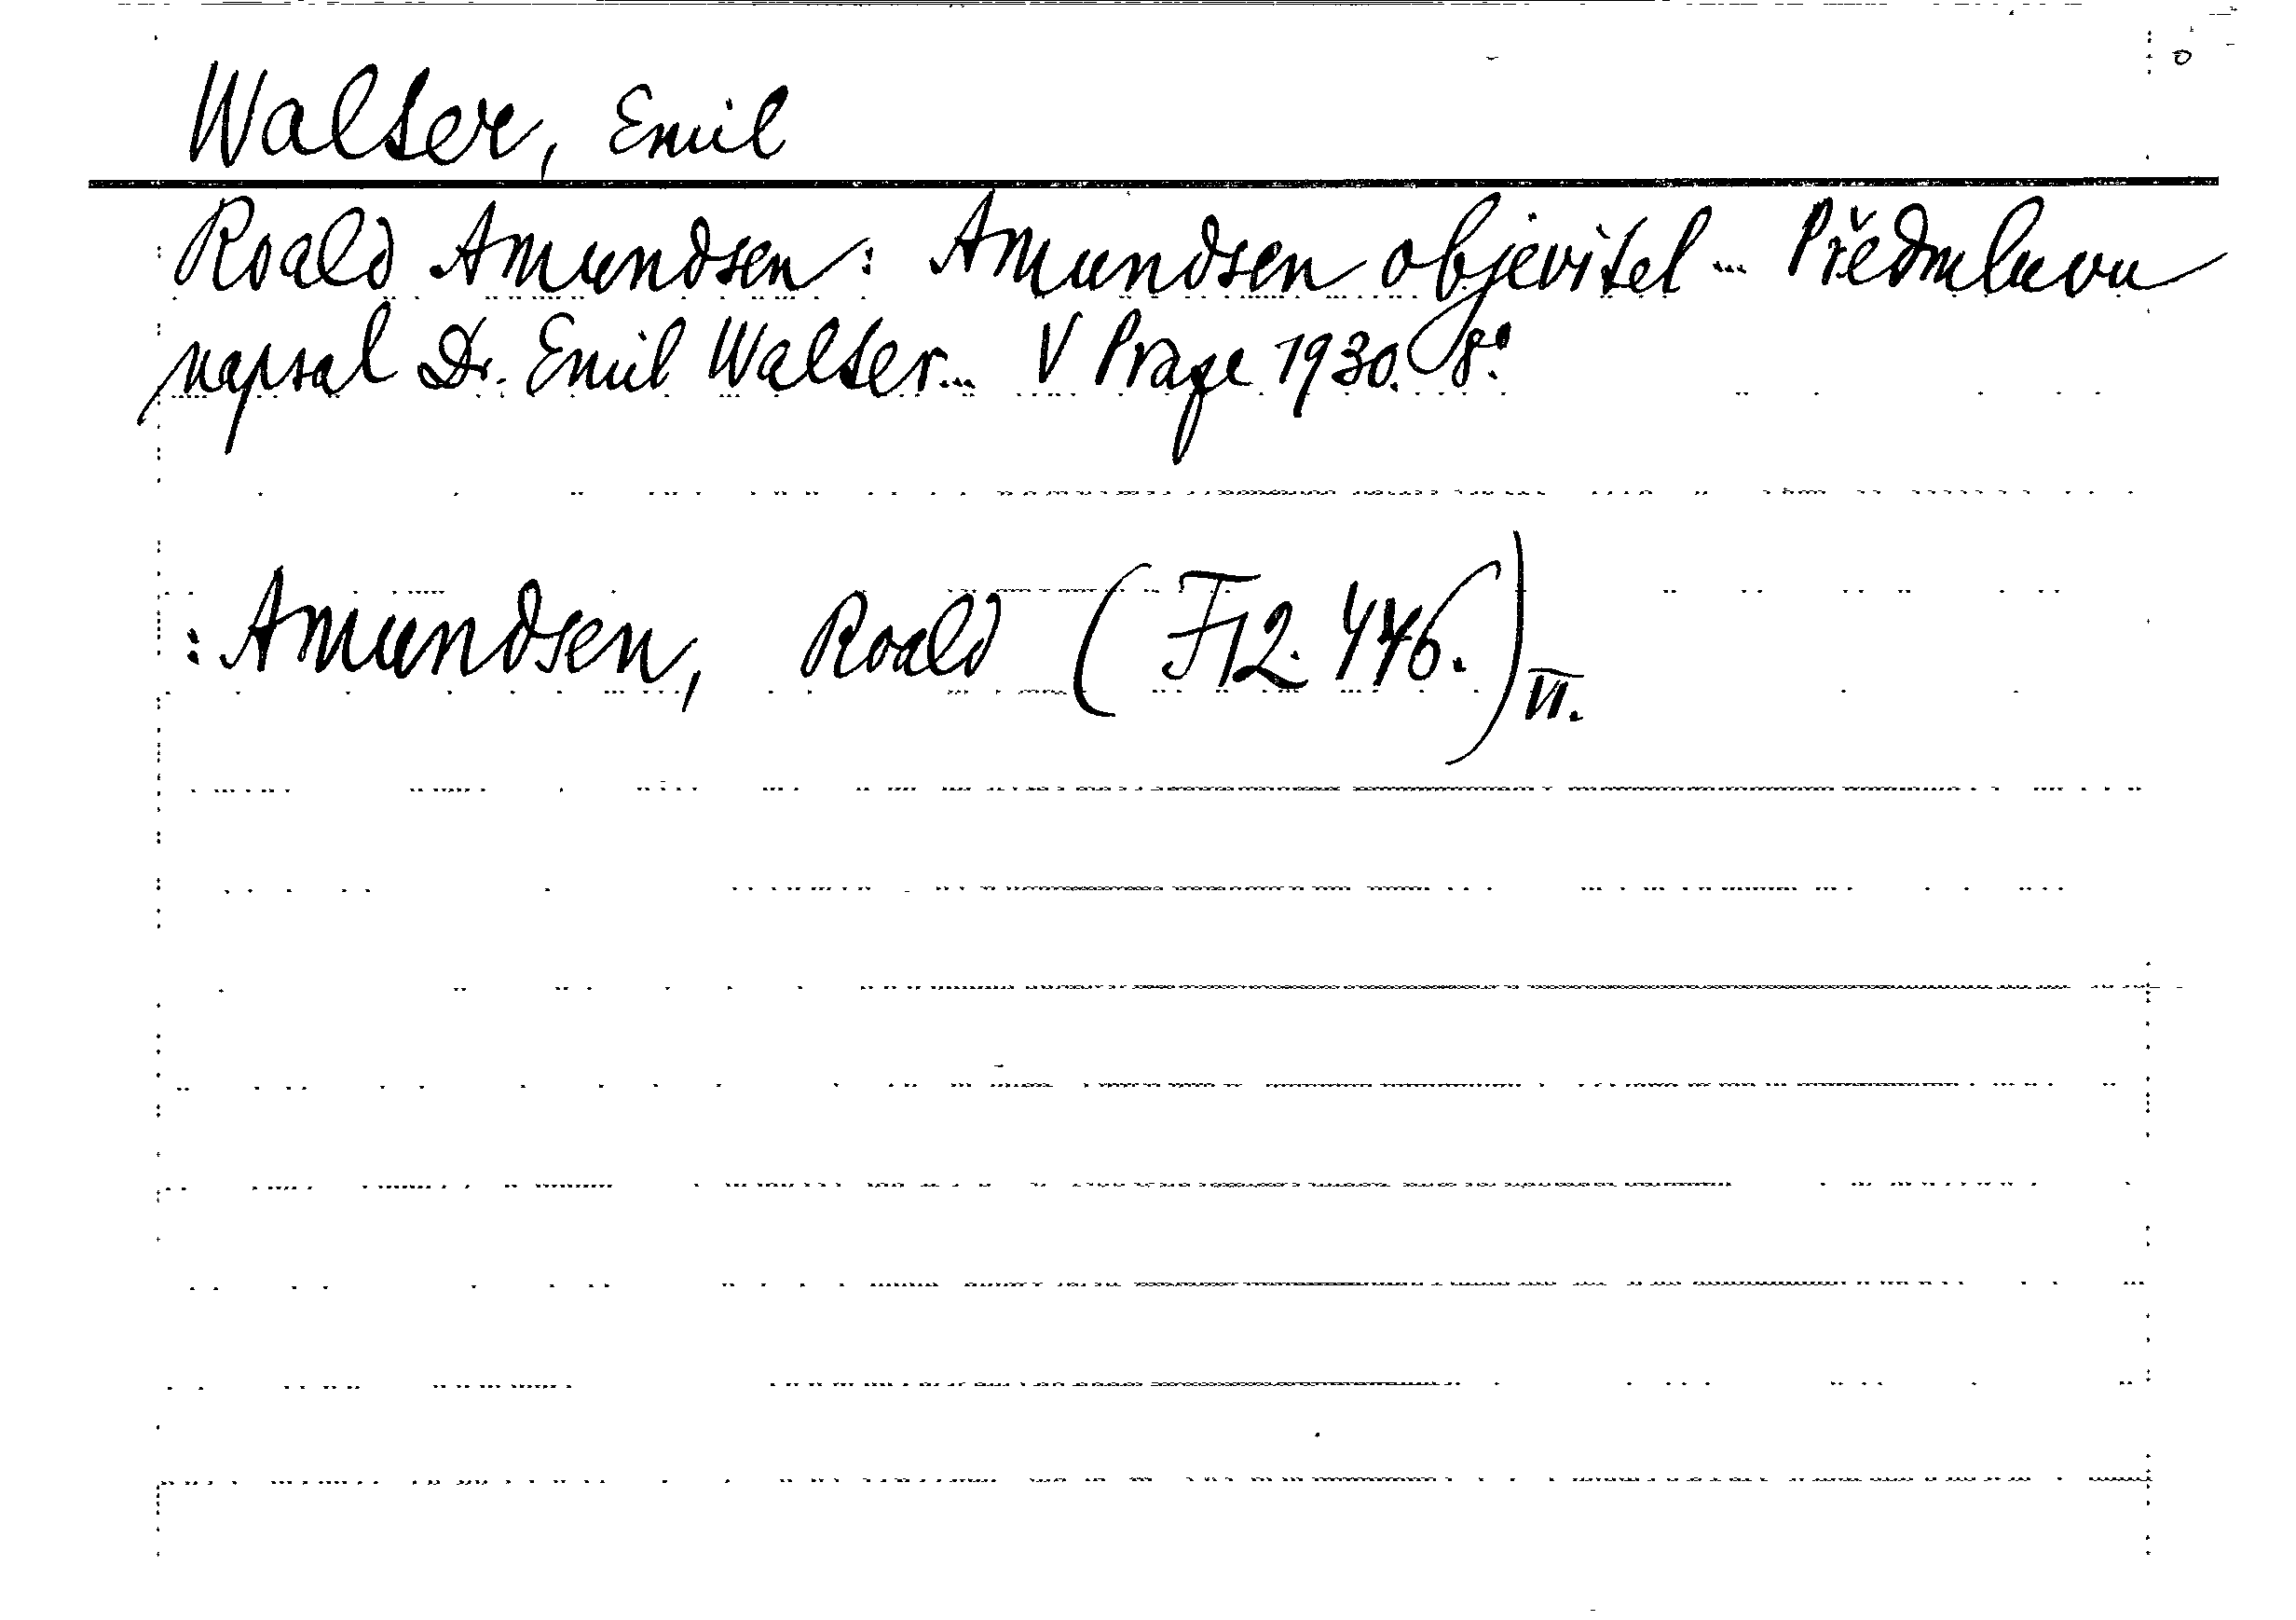 Walter, Emil
Roald Amundsen: Amundsen objevitel... Předmluvu
napsal Dr. Emil Walter... V Praze 1930. 8°.
: Amundsen, Roald (F12.446.) VI.